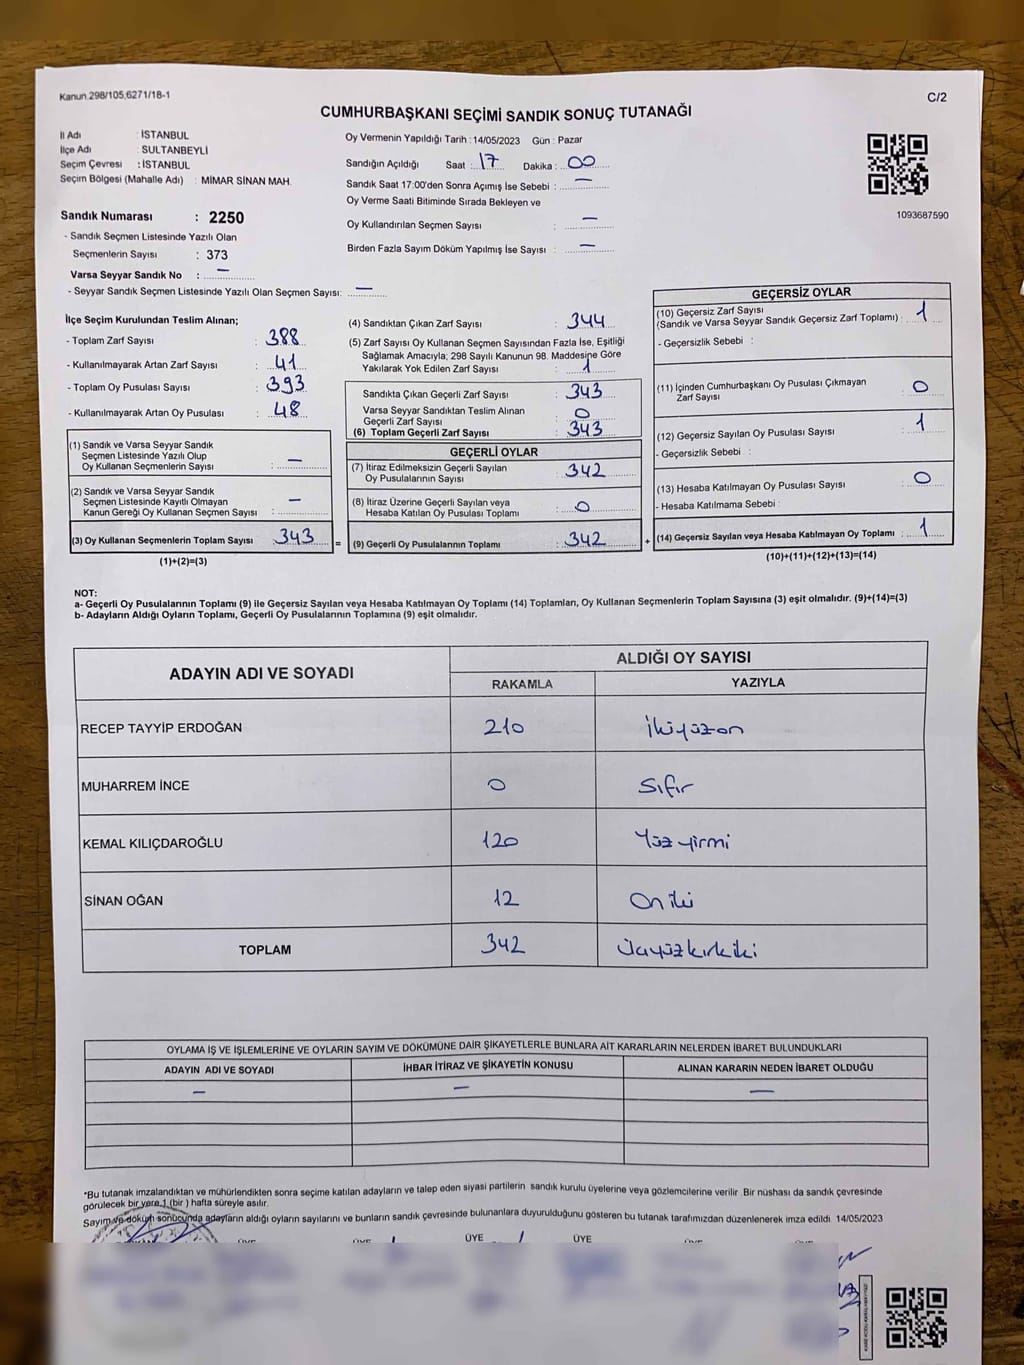 Kanun.298/105,6271/18-1
C/2
CUMHURBAŞKANI SEÇİMİ SANDIK SONUÇ TUTANAĞI
İl Adı : İSTANBUL
İlçe Adı : SULTANBEYLİ
Seçim Çevresi : İSTANBUL
Seçim Bölgesi (Mahalle Adı) : MİMAR SİNAN MAH.
Oy Vermenin Yapıldığı Tarih : 14/05/2023 Gün : Pazar
Sandığın Açıldığı Saat : 17 Dakika : 00
Sandık Saat 17:00'den Sonra Açımış İse Sebebi : —
Oy Verme Saati Bitiminde Sırada Bekleyen ve
Oy Kullandırılan Seçmen Sayısı : —
Birden Fazla Sayım Döküm Yapılmış İse Sayısı : —
1093687590
Sandık Numarası : 2250
- Sandık Seçmen Listesinde Yazılı Olan
Seçmenlerin Sayısı : 373
Varsa Seyyar Sandık No : —
- Seyyar Sandık Seçmen Listesinde Yazılı Olan Seçmen Sayısı: —
İlçe Seçim Kurulundan Teslim Alınan;
- Toplam Zarf Sayısı : 388
- Kullanılmayarak Artan Zarf Sayısı : 41
- Toplam Oy Pusulası Sayısı : 393
- Kullanılmayarak Artan Oy Pusulası : 48
(1) Sandık ve Varsa Seyyar Sandık
Seçmen Listesinde Yazılı Olup
Oy Kullanan Seçmenlerin Sayısı : —
(2) Sandık ve Varsa Seyyar Sandık
Seçmen Listesinde Kayıtlı Olmayan
Kanun Gereği Oy Kullanan Seçmen Sayısı : —
(3) Oy Kullanan Seçmenlerin Toplam Sayısı : 343 =
(1)+(2)=(3)
(4) Sandıktan Çıkan Zarf Sayısı : 344
(5) Zarf Sayısı Oy Kullanan Seçmen Sayısından Fazla İse, Eşitliği
Sağlamak Amacıyla; 298 Sayılı Kanunun 98. Maddesine Göre
Yakılarak Yok Edilen Zarf Sayısı : 1
Sandıkta Çıkan Geçerli Zarf Sayısı : 343
Varsa Seyyar Sandıktan Teslim Alınan
Geçerli Zarf Sayısı : 0
(6) Toplam Geçerli Zarf Sayısı : 343
GEÇERLİ OYLAR
(7) İtiraz Edilmeksizin Geçerli Sayılan
Oy Pusulalarının Sayısı : 342
(8) İtiraz Üzerine Geçerli Sayılan veya
Hesaba Katılan Oy Pusulası Toplamı : 0
(9) Geçerli Oy Pusulalarının Toplamı : 342 +
GEÇERSİZ OYLAR
(10) Geçersiz Zarf Sayısı
(Sandık ve Varsa Seyyar Sandık Geçersiz Zarf Toplamı) : 1
- Geçersizlik Sebebi :
(11) İçinden Cumhurbaşkanı Oy Pusulası Çıkmayan
Zarf Sayısı : 0
(12) Geçersiz Sayılan Oy Pusulası Sayısı : 1
- Geçersizlik Sebebi :
(13) Hesaba Katılmayan Oy Pusulası Sayısı : 0
- Hesaba Katılmama Sebebi :
(14) Geçersiz Sayılan veya Hesaba Katılmayan Oy Toplamı : 1
(10)+(11)+(12)+(13)=(14)
NOT:
a- Geçerli Oy Pusulalarının Toplamı (9) ile Geçersiz Sayılan veya Hesaba Katılmayan Oy Toplamı (14) Toplamları, Oy Kullanan Seçmenlerin Toplam Sayısına (3) eşit olmalıdır. (9)+(14)=(3)
b- Adayların Aldığı Oyların Toplamı, Geçerli Oy Pusulalarının Toplamına (9) eşit olmalıdır.
ADAYIN ADI VE SOYADI
ALDIĞI OY SAYISI
RAKAMLA YAZIYLA
RECEP TAYYİP ERDOĞAN 210 İkiyüzon
MUHARREM İNCE 0 Sıfır
KEMAL KILIÇDAROĞLU 120 Yüz yirmi
SİNAN OĞAN 12 On iki
TOPLAM 342 Üçyüzkırkiki
OYLAMA İŞ VE İŞLEMLERİNE VE OYLARIN SAYIM VE DÖKÜMÜNE DAİR ŞİKAYETLERLE BUNLARA AİT KARARLARIN NELERDEN İBARET BULUNDUKLARI
ADAYIN ADI VE SOYADI İHBAR İTİRAZ VE ŞİKAYETİN KONUSU ALINAN KARARIN NEDEN İBARET OLDUĞU
— — —
*Bu tutanak imzalandıktan ve mühürlendikten sonra seçime katılan adayların ve talep eden siyasi partilerin sandık kurulu üyelerine veya gözlemcilerine verilir. Bir nüshası da sandık çevresinde
görülecek bir yere 1 (bir) hafta süreyle asılır.
Sayım ve döküm sonucunda adayların aldığı oyların sayılarını ve bunların sandık çevresinde bulunanlara duyurulduğunu gösteren bu tutanak tarafımızdan düzenlenerek imza edildi. 14/05/2023
ÜYE ÜYE ÜYE ÜYE